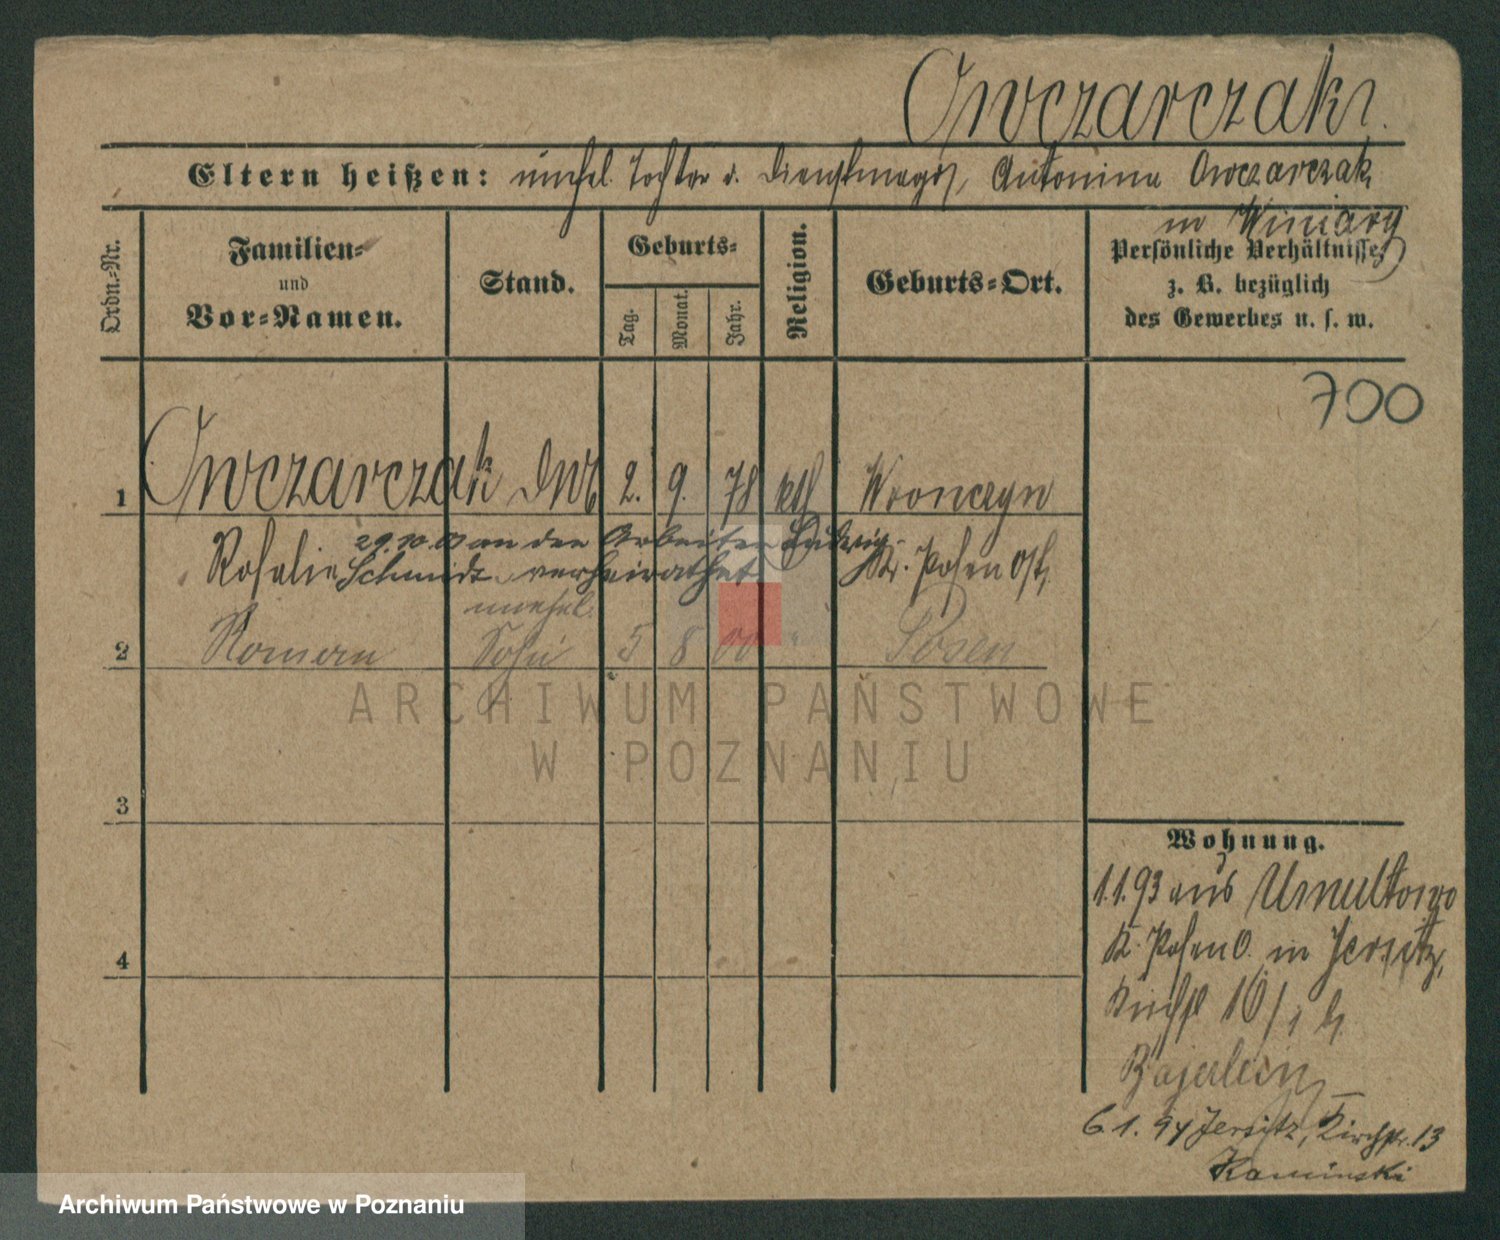 Owczarczak.
Eltern heißen: unehel. Tochter d. Dienstmagd, Antonina Owczarczak
in Winiary
Ordn.-Nr.
Familien-
und
Vor-Namen.
Stand.
Geburts-
Tag.
Monat.
Jahr.
Religion.
Geburts-Ort.
Persönliche Verhältnisse
z. B. bezüglich
des Gewerbes u. s. w.
700
1 Owczarczak 2. 9. 78 kth Wronczyn
29.10.00 an den Arbeiter Ludwig
Rosalie Schmidt verheirathet Kr. Posen Ost,
unehel.
2 Roman Sohn 5 8 00 " Posen
3
4
Wohnung.
1.1.93 aus Umultowo
K. Posen O. in Jersitz,
Kirchstr 16/1 b,
Bajerlein
6.1.94 Jersitz, Kirchstr. 13
Kaminski
ARCHIWUM PAŃSTWOWE
W POZNANIU
Archiwum Państwowe w Poznaniu